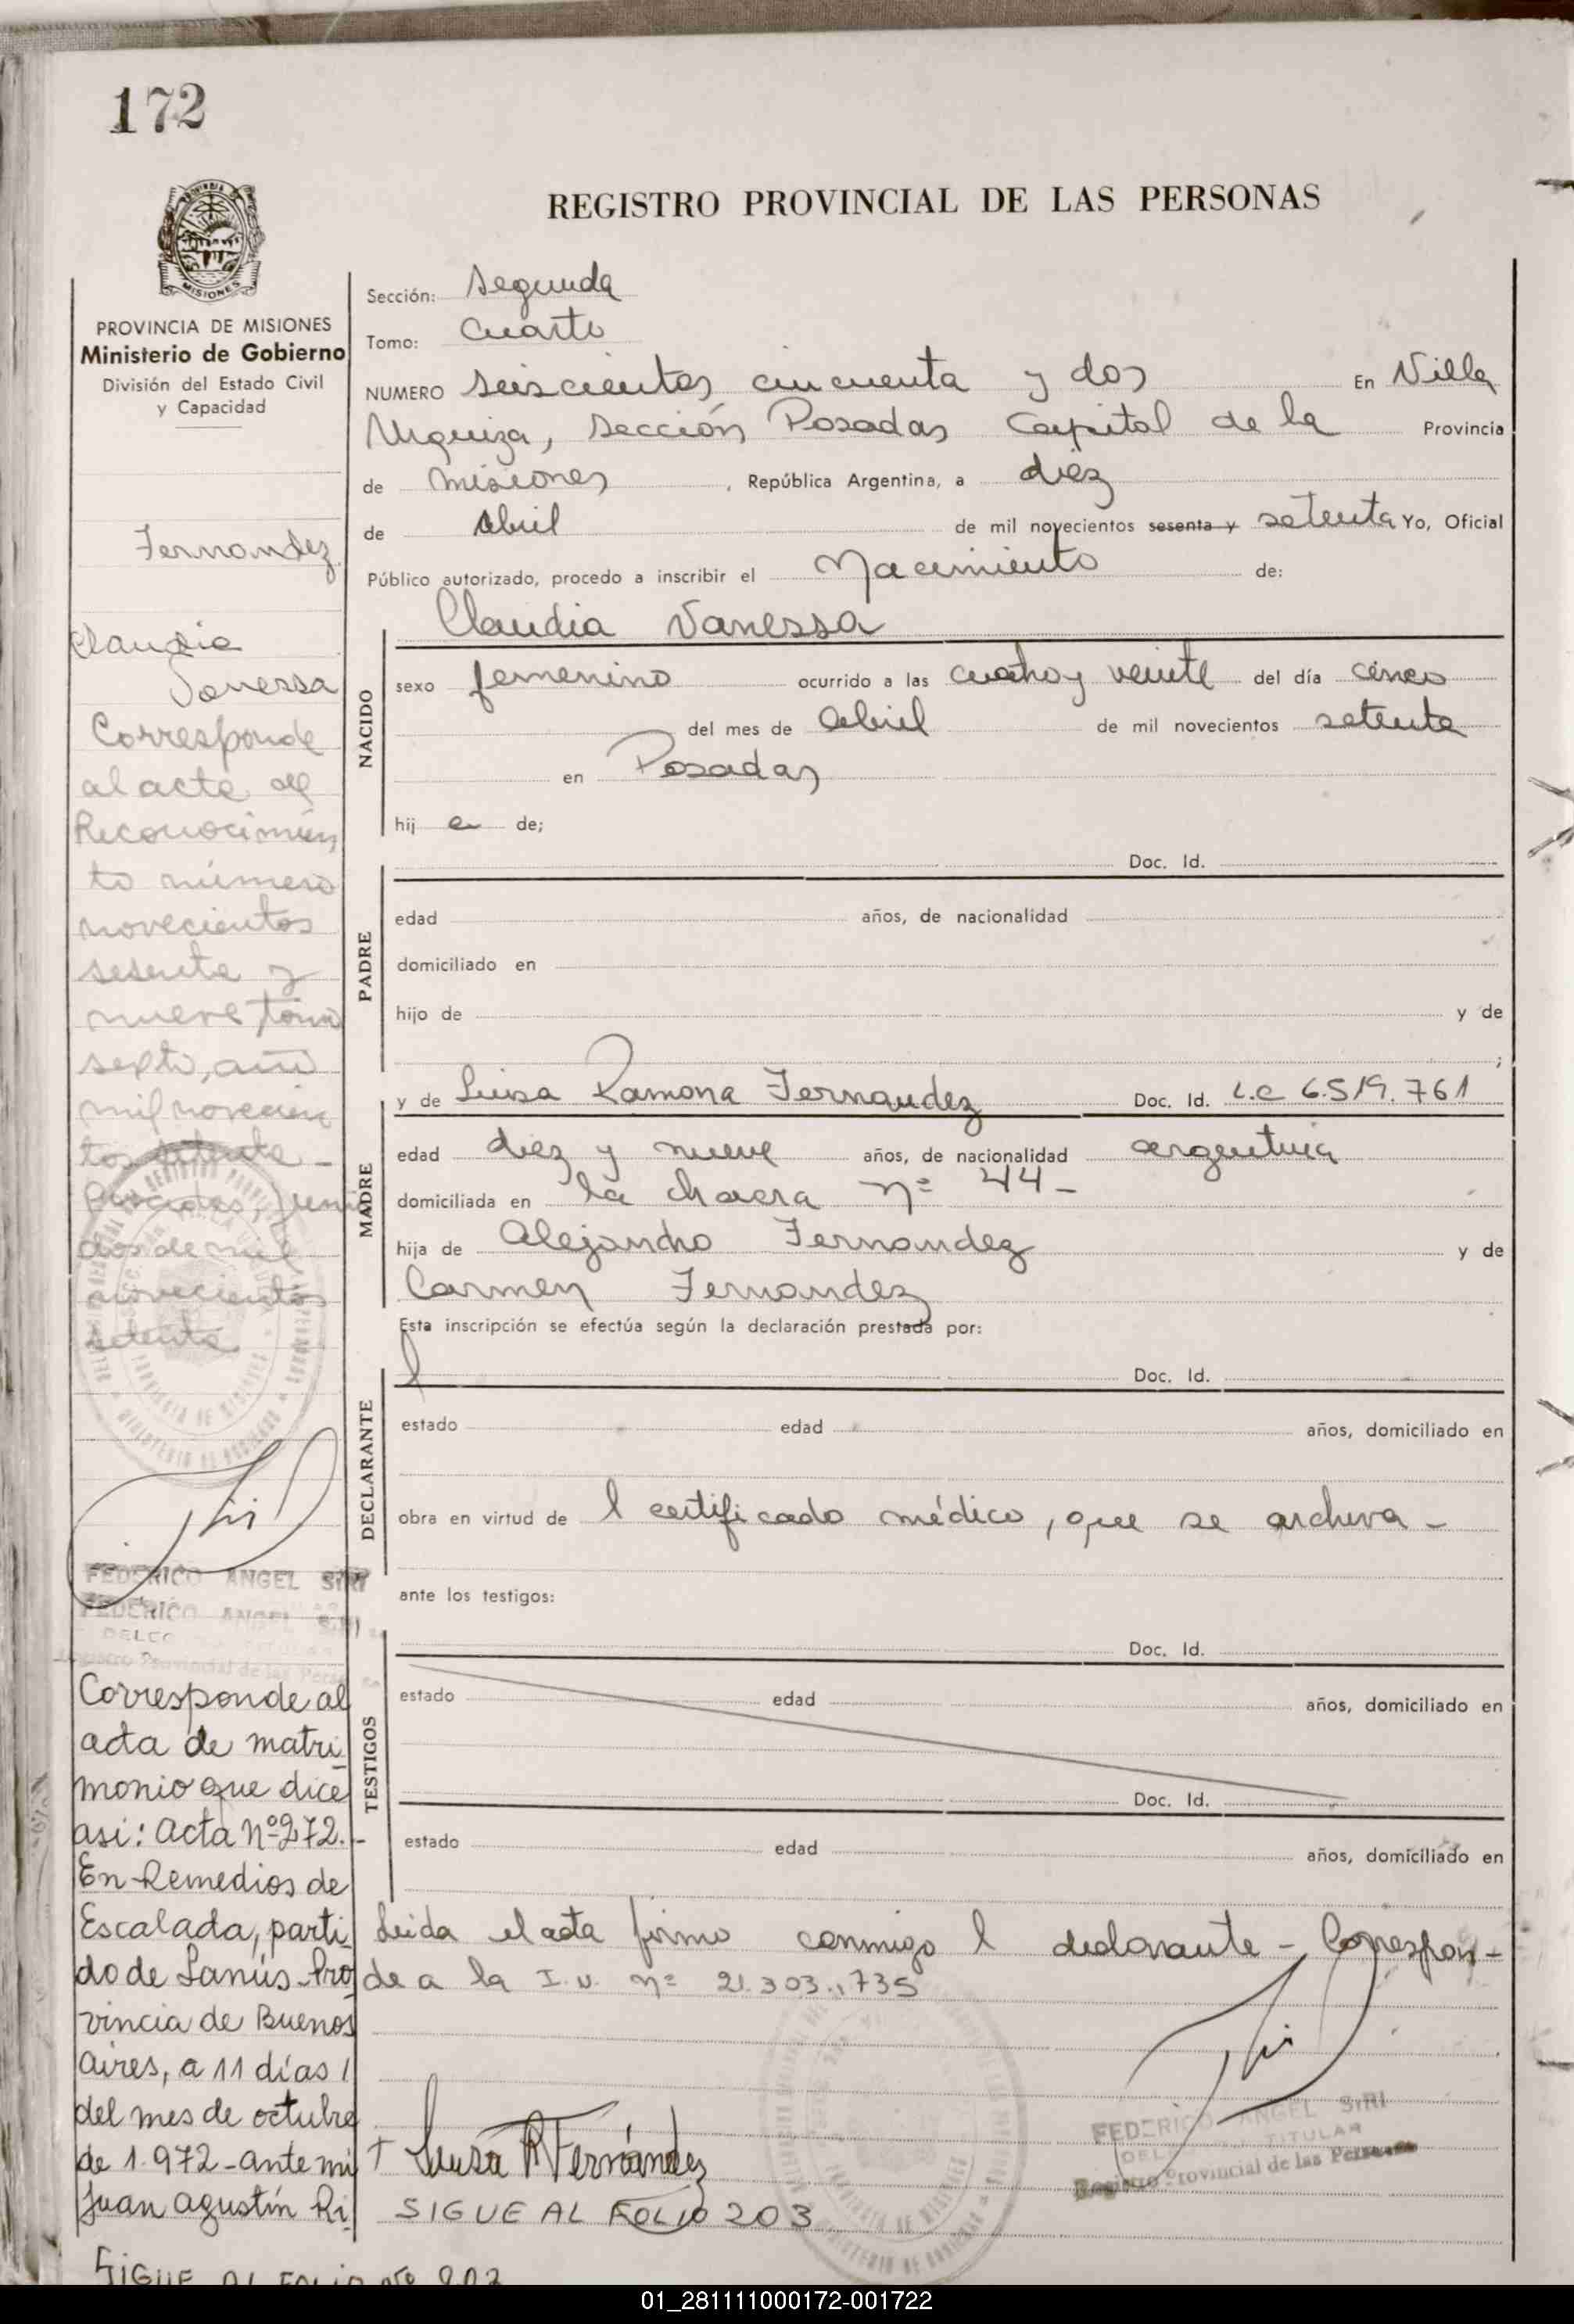 172
REGISTRO PROVINCIAL DE LAS PERSONAS
MISIONES
PROVINCIA DE MISIONES
Ministerio de Gobierno
División del Estado Civil
y Capacidad
Fernandez
Claudia
Vanessa
Corresponde
al acta de
Reconocimien
to número
novecientos
sesenta y
nueve, tomo
septo, año
mil novecien
tos setenta -
Posadas, junio
dos de mil
novecientos
setenta
FEDERICO ANGEL SIRI
FEDERICO ANGEL SIRI
Registro Provincial de las Personas
Corresponde al
acta de matri
monio que dice
asi: Acta Nº 272.-
En Remedios de
Escalada, parti
do de Lanús-Pro
vincia de Buenos
Aires, a 11 días
del mes de octubre
de 1.972-ante mi
Juan Agustín Ri
SIGUE AL FOLIO Nº 203
Sección: Segunda
Tomo: Cuarto
NUMERO seiscientos cincuenta y dos En Villa
Urquiza, Sección Posadas Capital de la Provincia
de Misiones, República Argentina, a diez
de Abril de mil novecientos sesenta y setenta Yo, Oficial
Público autorizado, procedo a inscribir el Nacimiento de:
Claudia Vanessa
NACIDO
sexo femenino ocurrido a las cuatro y veinte del día cinco
del mes de Abril de mil novecientos setenta
en Posadas
hij a de;
PADRE
Doc. Id.
edad años, de nacionalidad
domiciliado en
hijo de y de
;
MADRE
y de Luisa Ramona Fernandez Doc. Id. L.C 6.519.761
edad diez y nueve años, de nacionalidad argentina
domiciliada en la chacra nº 44-
hija de Alejandro Fernandez y de
Carmen Fernandez
Esta inscripción se efectúa según la declaración prestada por:
DECLARANTE
l Doc. Id.
estado edad años, domiciliado en
obra en virtud de l certificado médico, que se archiva -
ante los testigos:
TESTIGOS
Doc. Id.
estado edad años, domiciliado en
Doc. Id.
estado edad años, domiciliado en
Leida el acta firmo conmigo l declarante - Correspon-
de a la I.U. nº 21.303.,735
FEDERICO ANGEL SIRI
DELEGADO TITULAR
Registro Provincial de las Personas
+ Luisa R Fernández
SIGUE AL FOLIO 203
01_281111000172-001722